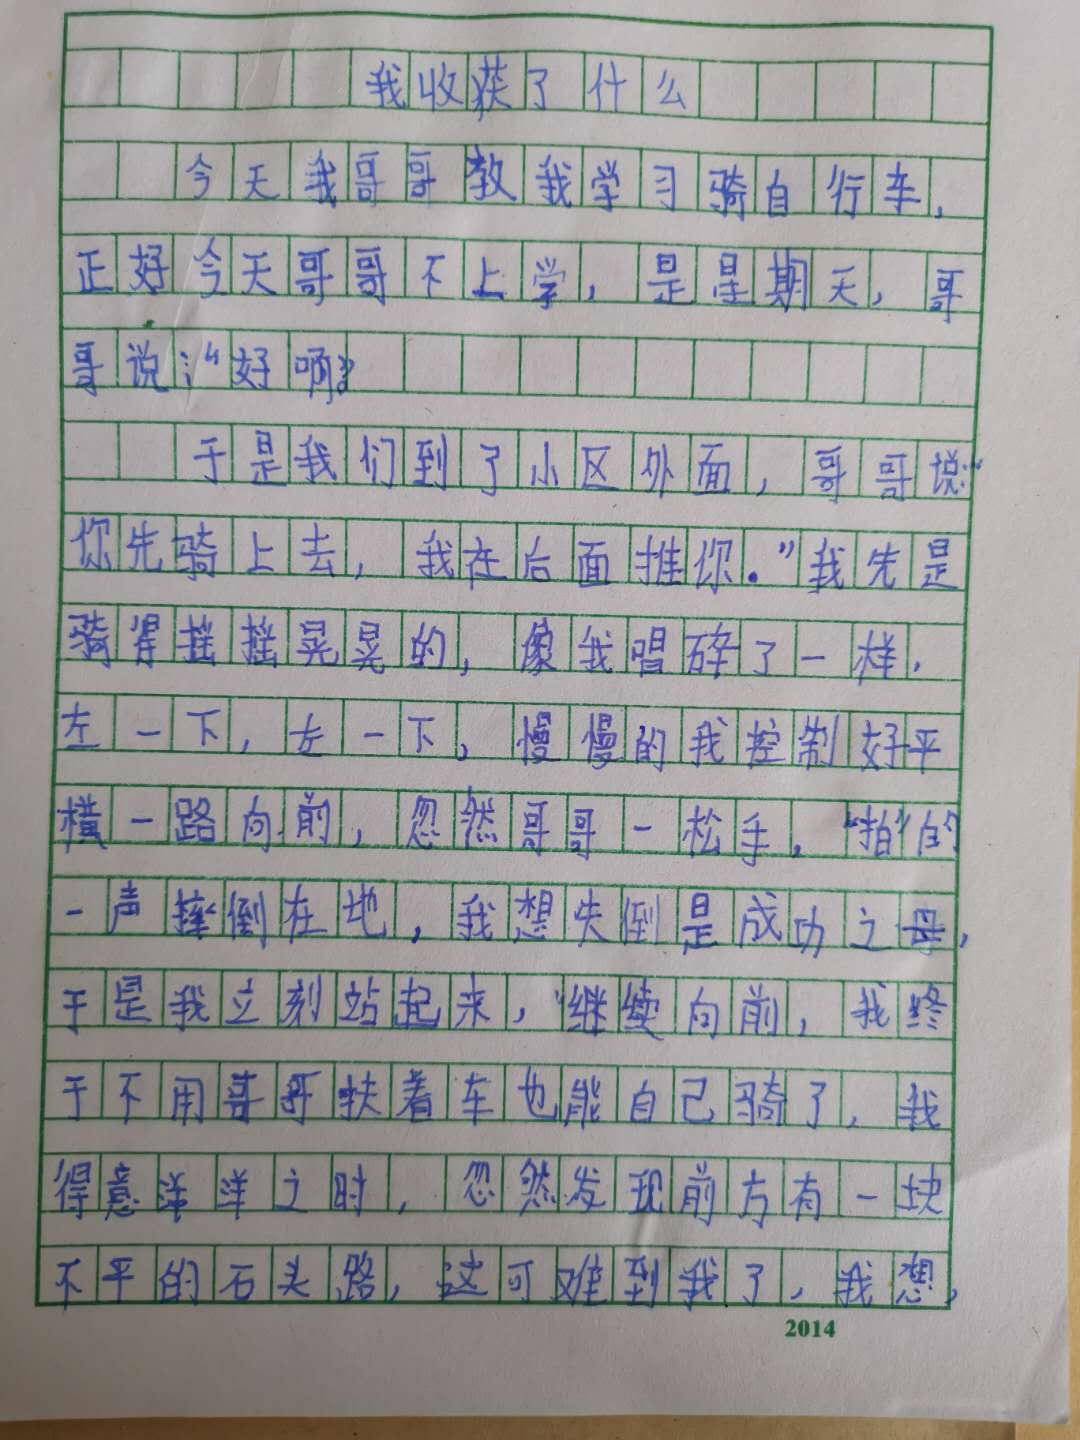 我收获了什么
今天我哥哥教我学习骑自行车，
正好今天哥哥不上学，是星期天，哥
哥说：“好啊”
于是我们到了小区外面，哥哥说“
你先骑上去，我在后面推你.”我先是
骑得摇摇晃晃的，像我唱碎了一样.
左一下，左一下，慢慢的我控制好平
横一路向前，忽然哥哥一松手，“拍”的
一声摔倒在地，我想失倒是成功之母，
于是我立刻站起来，继续向前，我终
于不用哥哥扶着车也能自己骑了，我
得意洋洋之时，忽然发现前方有一块
不平的石头路，这可难到我了，我想，
2014